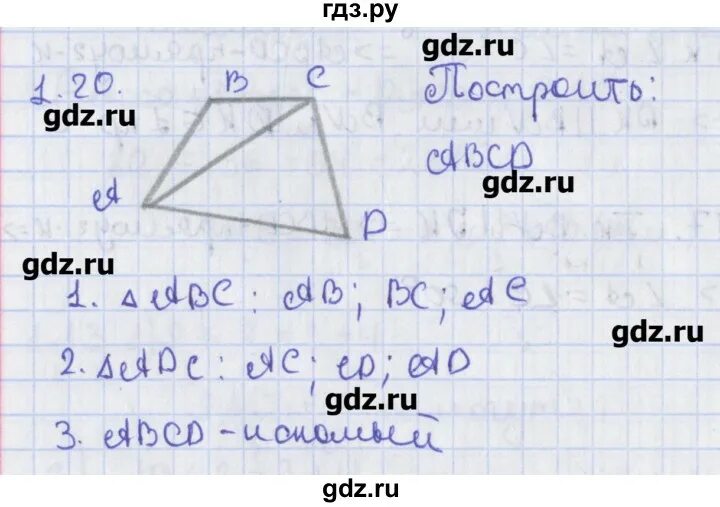 гдз.ру
gdz.ru
1.20.
B C
Построить:
gdz.ru
ABCD
gdz.ru
A
D
gdz.ru
1. △ABC: AB; BC; AC
gdz.ru
2. △ADC: AC; CD; AD
gdz.ru
3. ABCD - искомый
gdz.ru